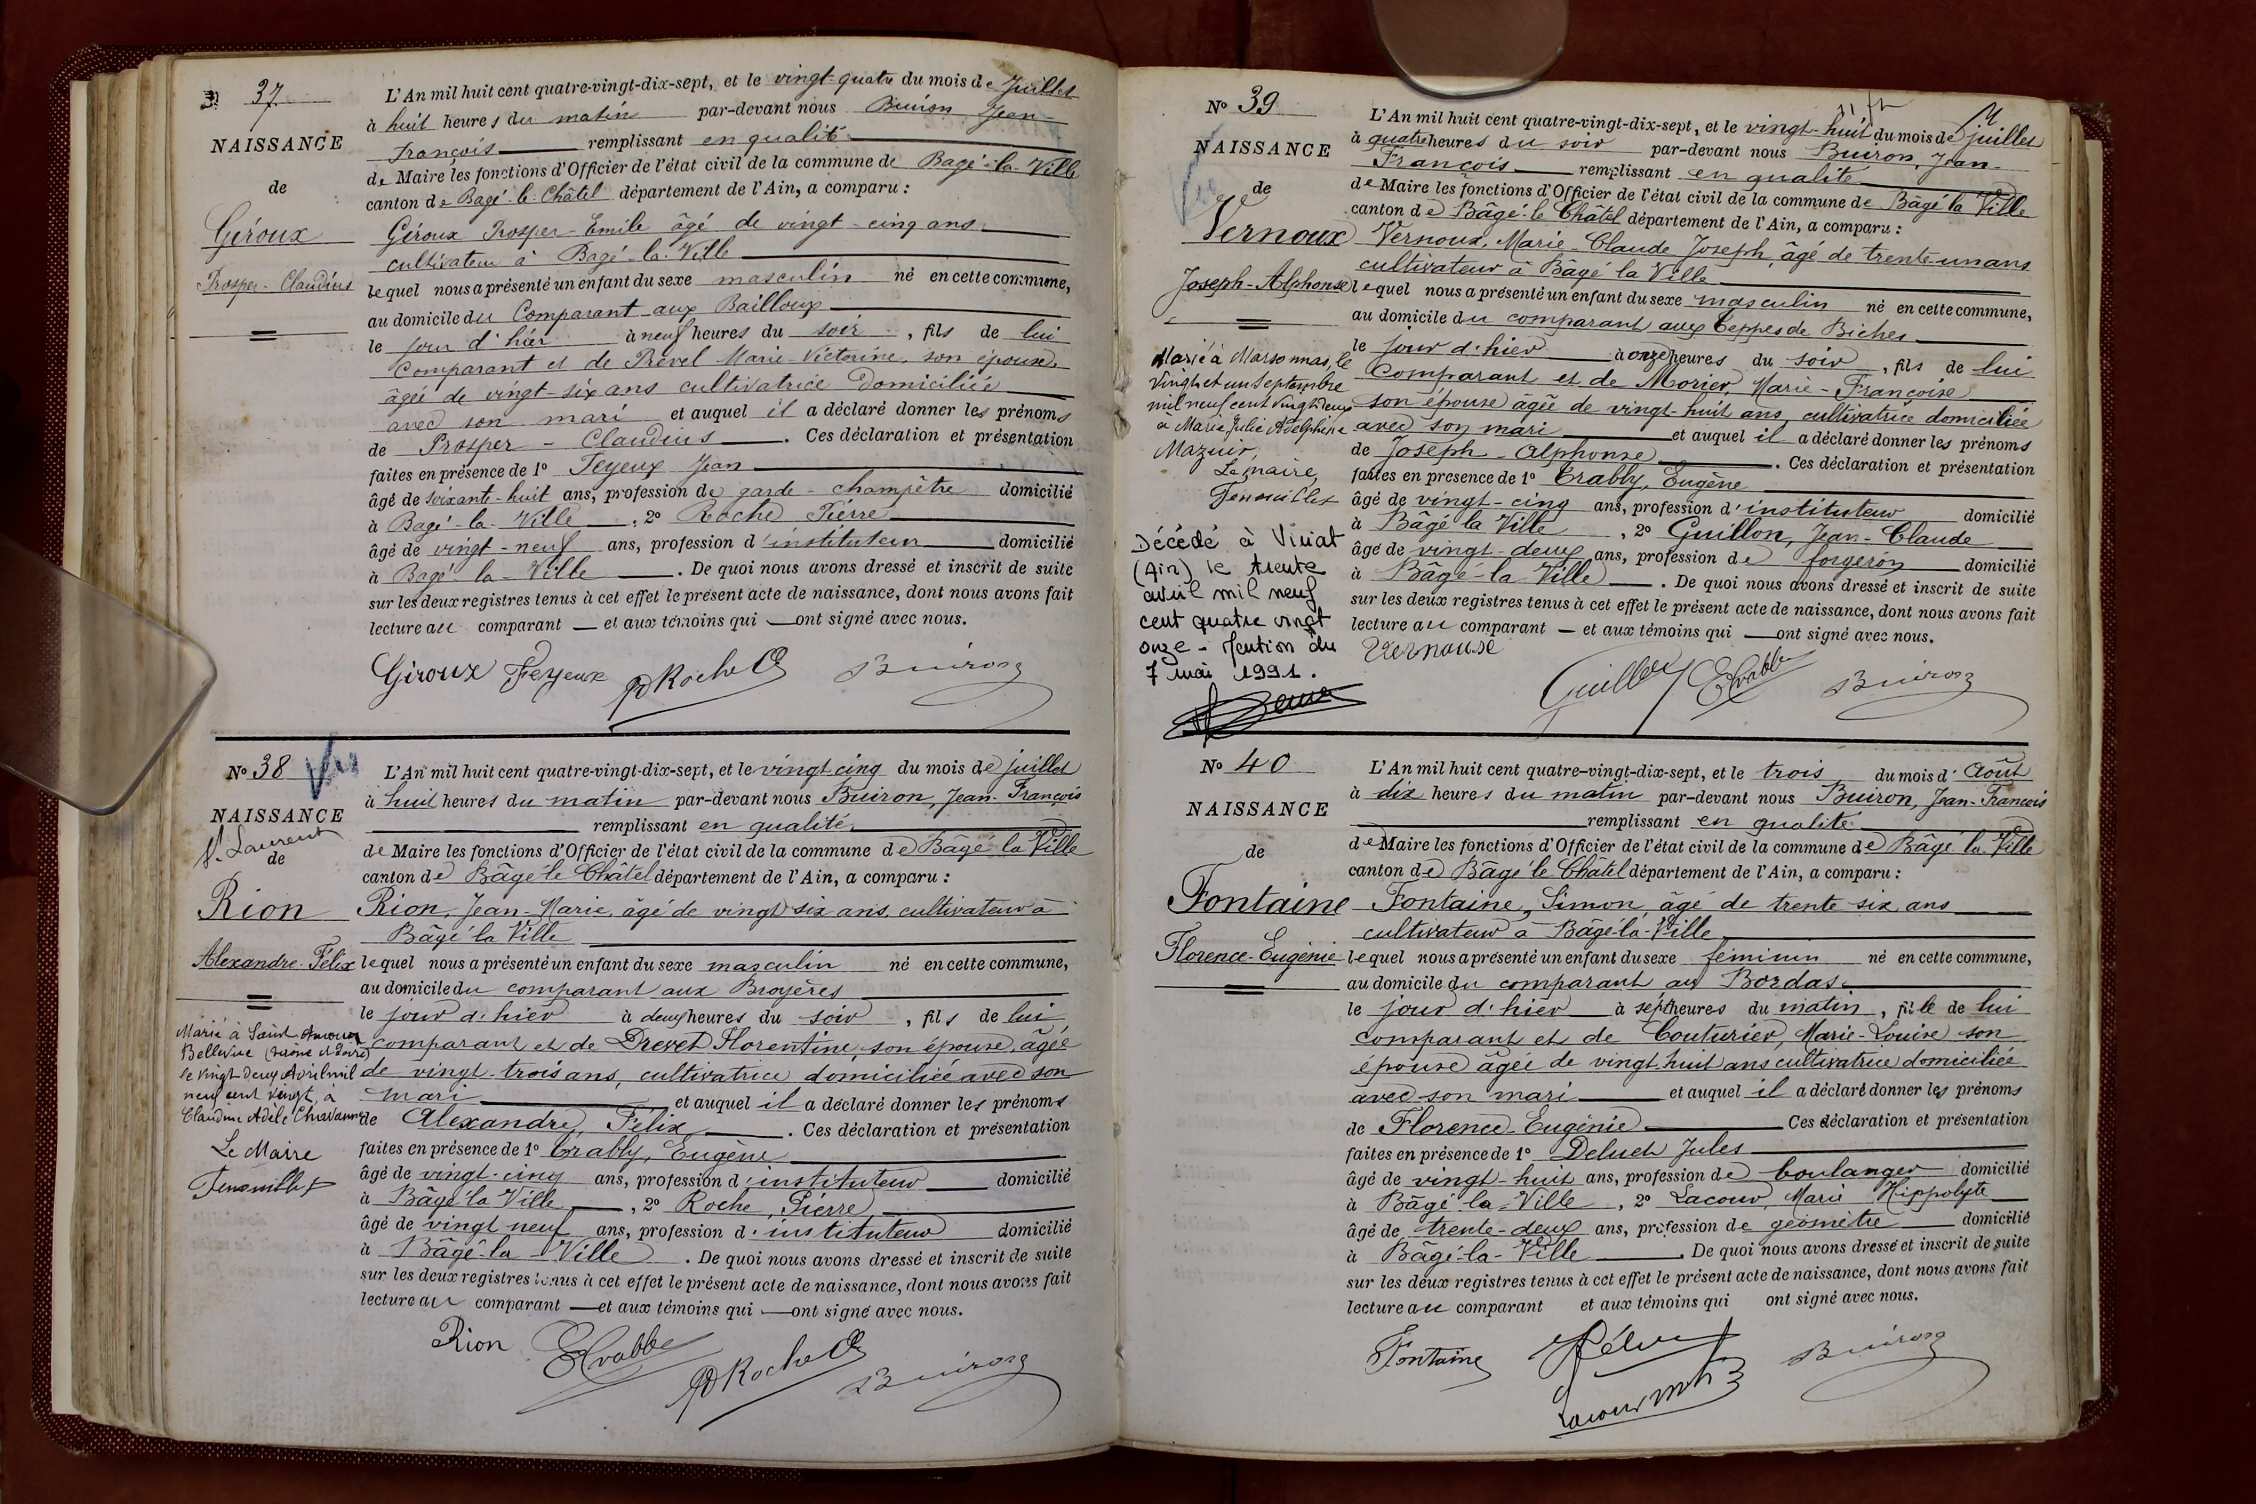 No 37
NAISSANCE
de
Géroux
Prosper-Claudius
L'An mil huit cent quatre-vingt-dix-sept, et le vingt-quatre du mois de Juillet
à huit heures du matin par-devant nous Buiron Jean-
François remplissant en qualité
de Maire les fonctions d'Officier de l'état civil de la commune de Bagé-la-Ville
canton de Bagé-le-Châtel département de l'Ain, a comparu :
Géroux Prosper-Emile âgé de vingt-cinq ans
cultivateur à Bagé-la-Ville
lequel nous a présenté un enfant du sexe masculin né en cette commune,
au domicile du Comparant aux Bailloux
le jour d'hier à neuf heures du soir, fils de lui
Comparant et de Prével Marie-Victorine, son épouse,
âgée de vingt-six ans cultivatrice domiciliée
avec son mari et auquel il a déclaré donner les prénoms
de Prosper-Claudius. Ces déclaration et présentation
faites en présence de 1o Feyeux Jean
âgé de soixante-huit ans, profession de garde-champêtre domicilié
à Bagé-la-Ville, 2o Roche Pierre
âgé de vingt-neuf ans, profession d'instituteur domicilié
à Bagé-la-Ville. De quoi nous avons dressé et inscrit de suite
sur les deux registres tenus à cet effet le présent acte de naissance, dont nous avons fait
lecture au comparant et aux témoins qui ont signé avec nous.
Giroux Feyeux Roche Buiron
No 38
NAISSANCE
St Laurent
de
Rion
Alexandre-Félix
Marié à Saint Amour
Bellevue (Saône et Loire)
le vingt-deux Avril mil
neuf cent vingt, à
Claudine Adèle Chavanne
Le Maire
Fenouillet
L'An mil huit cent quatre-vingt-dix-sept, et le vingt-cinq du mois de juillet
à huit heures du matin par-devant nous Buiron, Jean-François
remplissant en qualité
de Maire les fonctions d'Officier de l'état civil de la commune de Bâgé la Ville
canton de Bâgé-le Châtel département de l'Ain, a comparu :
Rion, Jean-Marie, âgé de vingt six ans, cultivateur à
Bâgé la Ville
lequel nous a présenté un enfant du sexe masculin né en cette commune,
au domicile du comparant aux Broyères
le jour d'hier à deux heures du soir, fils de lui
comparant et de Drevet Florentine, son épouse, âgée
de vingt-trois ans, cultivatrice domiciliée avec son
mari et auquel il a déclaré donner les prénoms
de Alexandre, Félix. Ces déclaration et présentation
faites en présence de 1o Crably, Eugène
âgé de vingt-cinq ans, profession d'instituteur domicilié
à Bâgé la Ville, 2o Roche, Pierre,
âgé de vingt neuf ans, profession d'instituteur domicilié
à Bâgé-la-Ville. De quoi nous avons dressé et inscrit de suite
sur les deux registres tenus à cet effet le présent acte de naissance, dont nous avons fait
lecture au comparant et aux témoins qui ont signé avec nous.
Rion Roche Buiron
No 39
NAISSANCE
de
Vernoux
Joseph-Alphonse
Marié à Marsonnas, le
vingt et un Septembre
mil neuf cent vingt deux
à Marie Julie Adelphine
Mazuir
Le maire,
Fenouillet
Décédé à Viriat
(Ain) le trente
avril mil neuf
cent quatre vingt
onze - Mention du
7 mai 1991.
L'An mil huit cent quatre-vingt-dix-sept, et le vingt-huit du mois de juillet
à quatre heures du soir par-devant nous Buiron, Jean-
François remplissant en qualité
de Maire les fonctions d'Officier de l'état civil de la commune de Bâgé la Ville
canton de Bâgé-le Châtel département de l'Ain, a comparu :
Vernoux, Marie-Claude Joseph, âgé de trente-un ans
cultivateur à Bâgé la Ville
lequel nous a présenté un enfant du sexe masculin né en cette commune,
au domicile du comparant aux Teppes de Biches
le jour d'hier à onze heures du soir, fils de lui
comparant et de Morier, Marie-Françoise
son épouse âgée de vingt-huit ans, cultivatrice domiciliée
avec son mari et auquel il a déclaré donner les prénoms
de Joseph-Alphonse. Ces déclaration et présentation
faites en présence de 1o Crably, Eugène
âgé de vingt-cinq ans, profession d'instituteur domicilié
à Bâgé la Ville, 2o Guillon, Jean-Claude
âgé de vingt-deux ans, profession de forgeron domicilié
à Bâgé-la-Ville. De quoi nous avons dressé et inscrit de suite
sur les deux registres tenus à cet effet le présent acte de naissance, dont nous avons fait
lecture au comparant et aux témoins qui ont signé avec nous.
Vernouse Guillon Buiron
No 40
NAISSANCE
de
Fontaine
Florence-Eugénie
L'An mil huit cent quatre-vingt-dix-sept, et le trois du mois d'Août
à dix heures du matin par-devant nous Buiron, Jean-François
remplissant en qualité
de Maire les fonctions d'Officier de l'état civil de la commune de Bâgé-la-Ville
canton de Bâgé le Châtel département de l'Ain, a comparu :
Fontaine, Simon, âgé de trente six ans
cultivateur à Bâgé-la-Ville
lequel nous a présenté un enfant du sexe féminin né en cette commune,
au domicile du comparant au Bordas
le jour d'hier à sept heures du matin, fille de lui
comparant et de Couturier, Marie-Louise son
épouse âgée de vingt-huit ans cultivatrice domiciliée
avec son mari et auquel il a déclaré donner les prénoms
de Florence-Eugénie Ces déclaration et présentation
faites en présence de 1o Deluet Jules
âgé de vingt-huit ans, profession de boulanger domicilié
à Bâgé la-Ville, 2o Lacour, Marie Hippolyte
âgé de trente-deux ans, profession de géomètre domicilié
à Bâgé-la-Ville. De quoi nous avons dressé et inscrit de suite
sur les deux registres tenus à cet effet le présent acte de naissance, dont nous avons fait
lecture au comparant et aux témoins qui ont signé avec nous.
Fontaine Buiron
Lacour